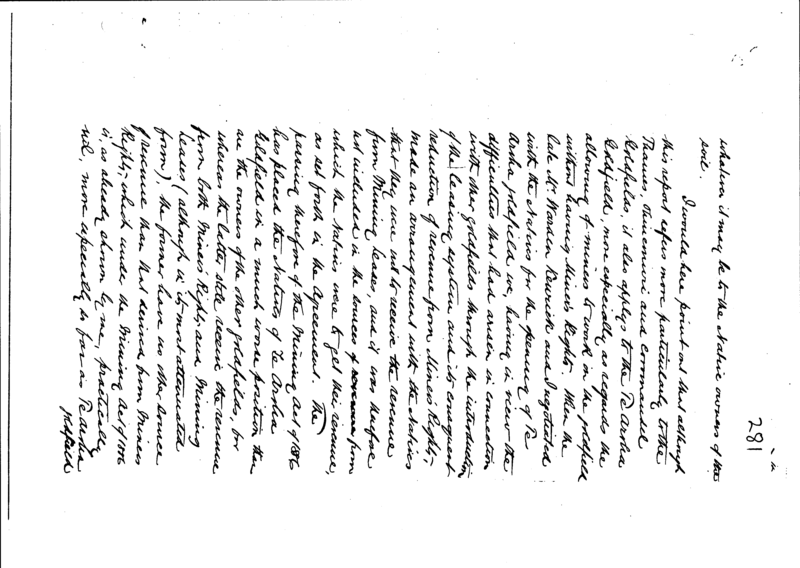 281
whatever it may be to the Native owners of the
soil.
I would here point out that although
this report refers more particularly to the
Thames, Ohinemuri and Coromandel
Goldfields, it also applys to the Te Aroha
Goldfield, more especially as regards the
allowing of miners to work in the goldfield
without having Miner's Rights. When the
late Mr Warden Kenrick and I negotiated
with the Natives for the opening of Te
Aroha goldfield we, having in view the
difficulties that had arisen in connection
with other Goldfields through the introduction
of the leasing system and its consequent
reduction of revenue from Miner's Rights,
made an arrangement with the Natives
that they were not to receive the revenue
from Mining leases, and it was therefore
not included in the sources of revenue from
which the Natives were to get their revenue,
as set forth in the Agreement. The
passing therefore of the Mining Act of 1886
has placed the Natives of Te Aroha
Goldfield in a much worse position than
are the owners of the other goldfields, for
whereas the latter still receive the revenue
from both Miners' Rights and Mining
Leases (although in its most attenuated
form), the former have no other source
of revenue than that derived from Miners
Rights, which under the Mining Act of 1886
is, as already shown by me, practically
nil, more especially so far as Te Aroha
goldfield